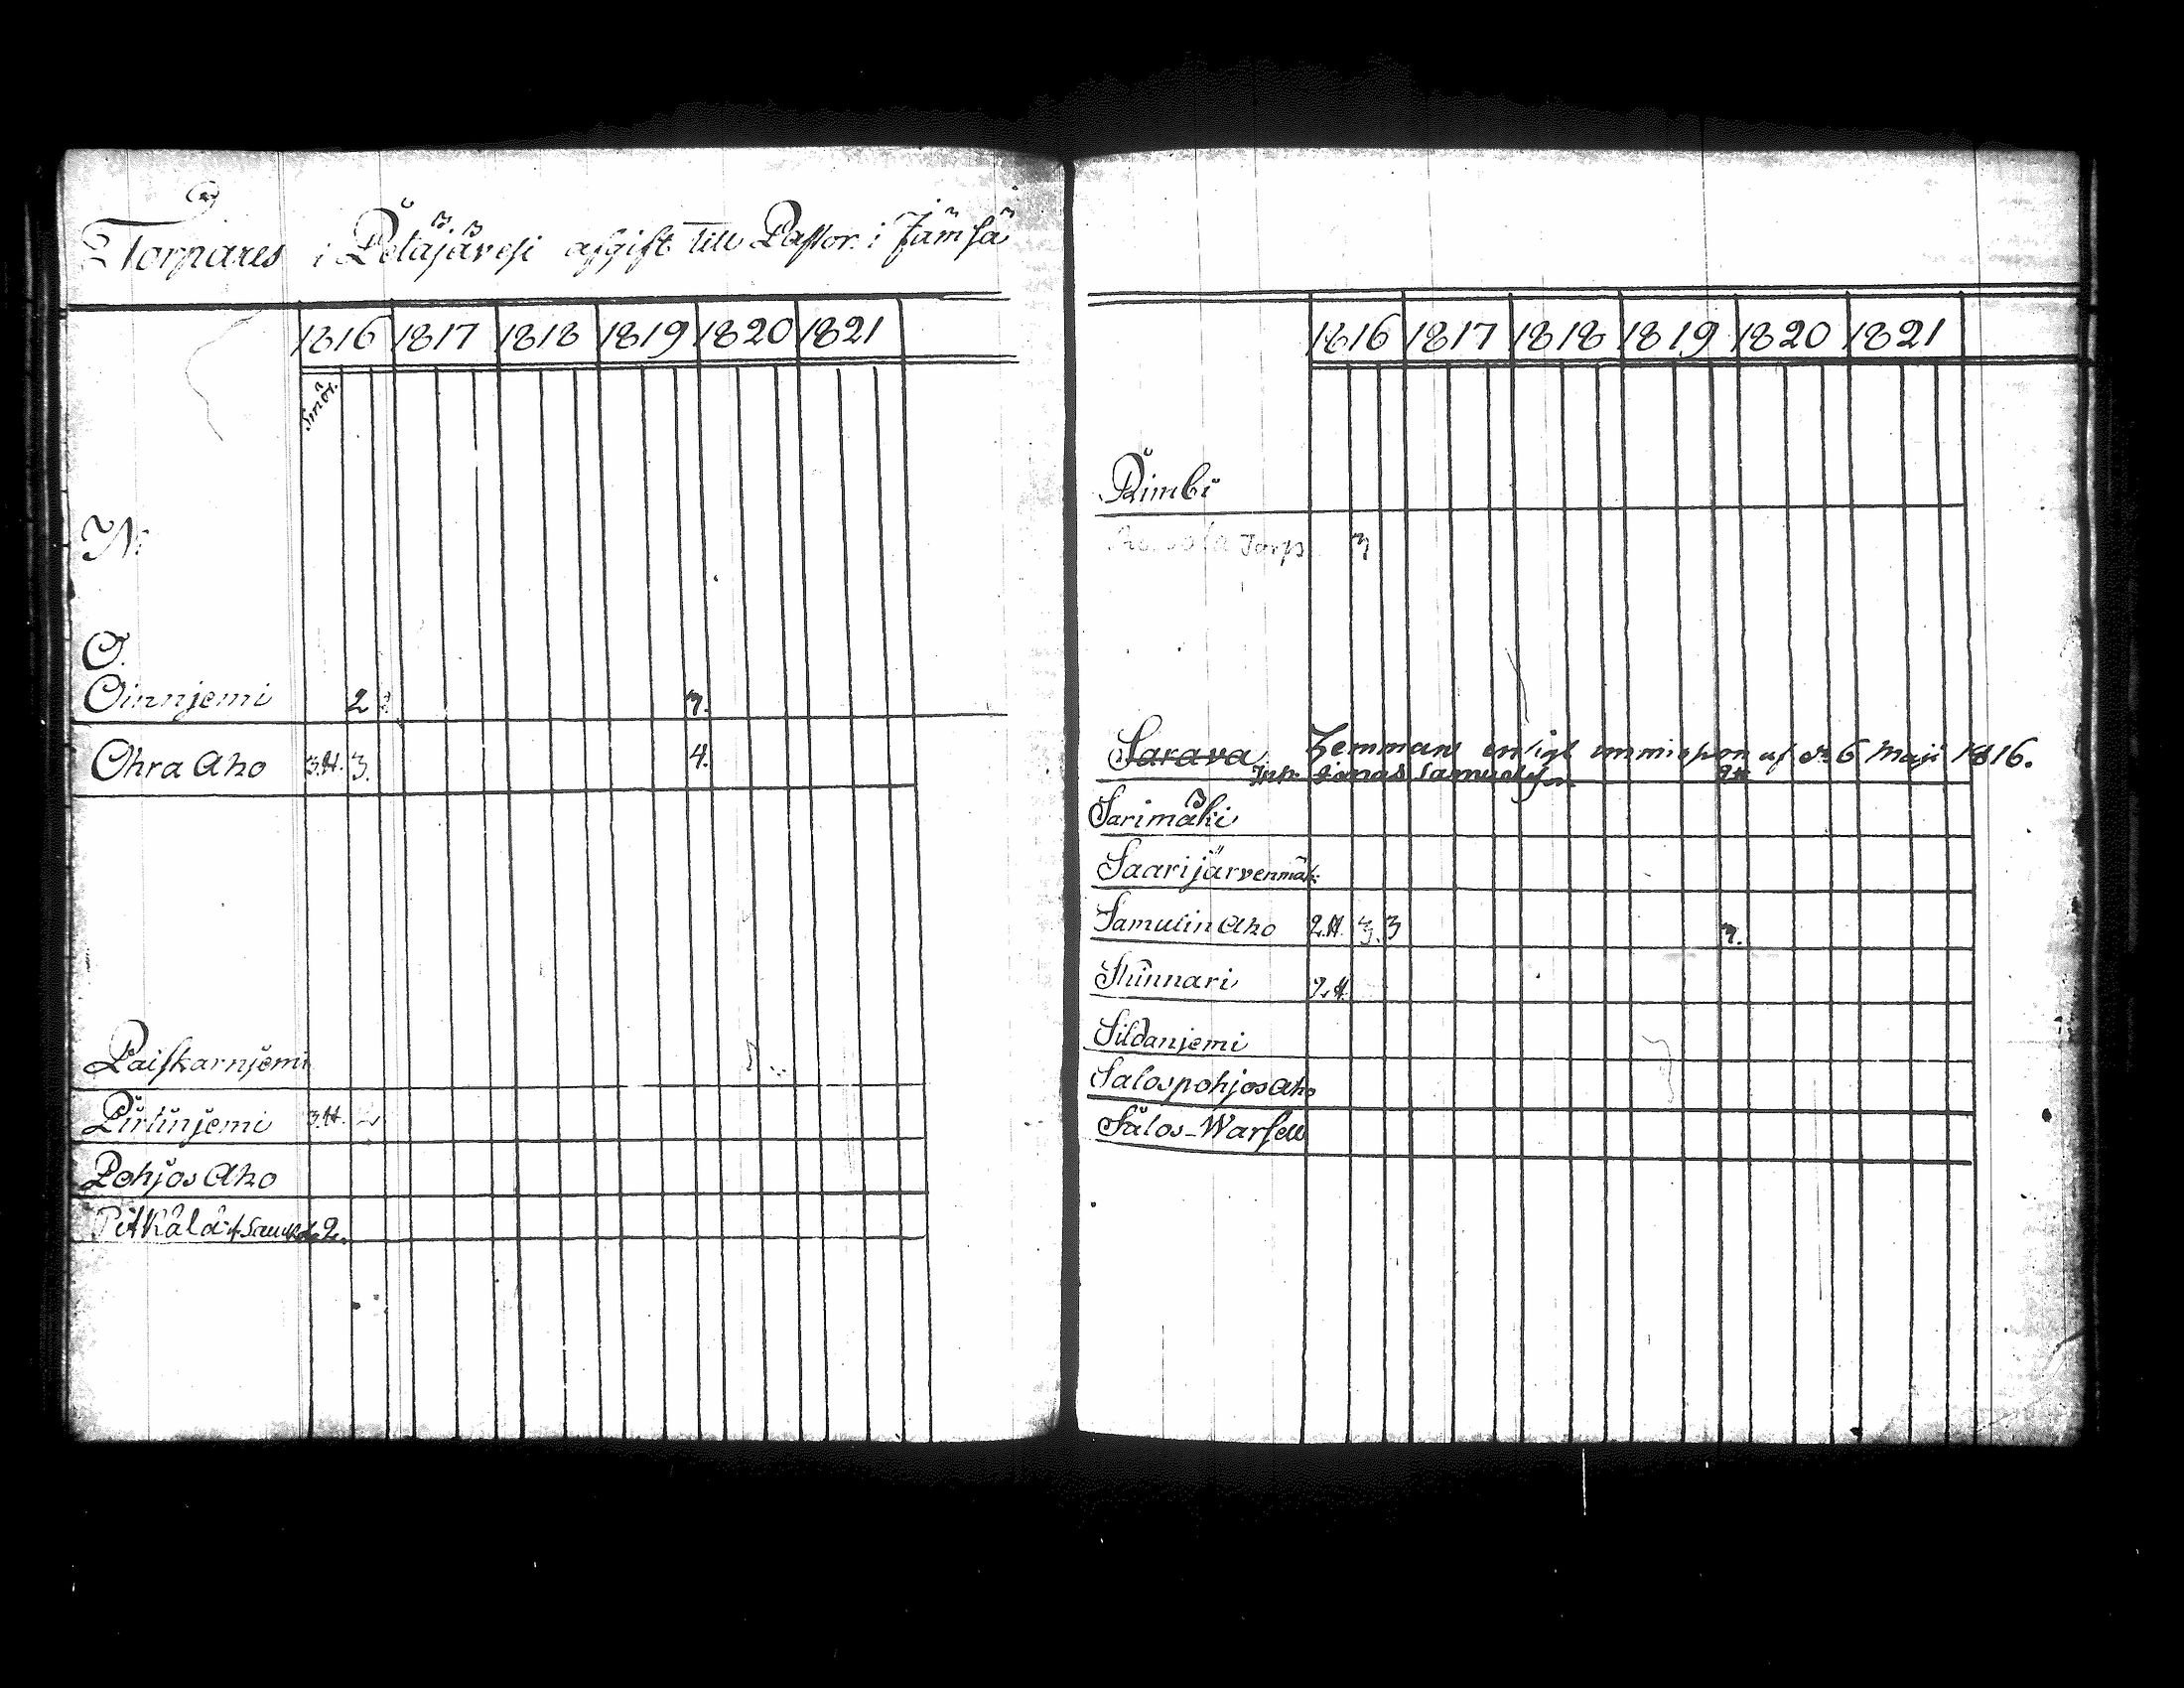 Torpares i Petäjävesi afgift till Pastor i Jämsä
1816 1817 1818 1819 1820 1821
Smör.
N:
O.
Oinnjemi 2 3.
Ohra Aho 3.# 3. 4.
Paiskarnjemi
Pirtinjemi 3.#.
Pohjos Aho
Pitkälä 2.
1816 1817 1818 1819 1820 1821
Rimbi
Torp 3
Sarava Hemman enligt immission af d: 6 Maji 1816.
Jonas Samuelsson
Sarimäki
Saarijärvenmäki
Samulin Aho 2.#. 3. 3 3.
Skinnari 2.#
Sildanjemi
Salospohjos Aho
Salos-Warsell